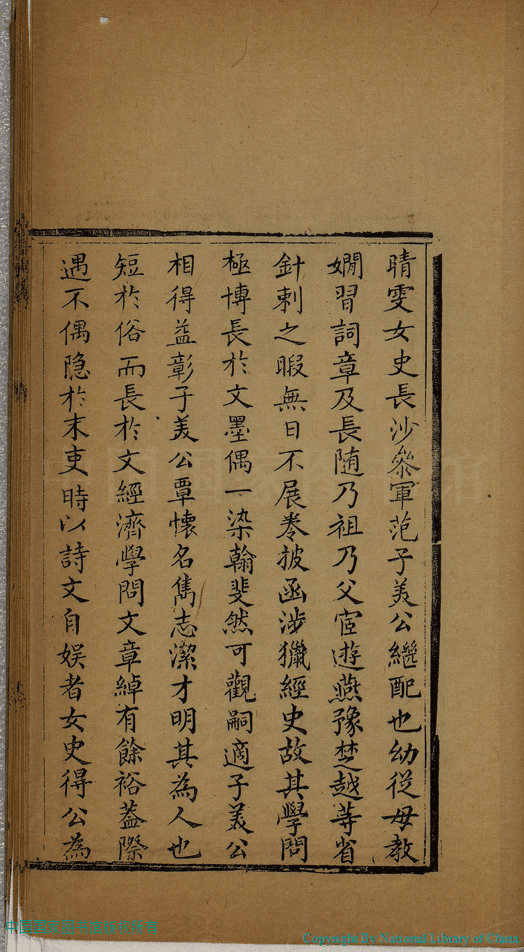 晴雯女史長沙叅軍范子美公繼配也幼從母教
嫺習詞章及長随乃祖乃父宦遊燕豫楚越等省
針刺之暇無日不展卷披函涉獵經史故其學問
極博長於文墨偶一染翰斐然可觀嗣適子美公
相得益彰子美公覃懷名雋志潔才明其為人也
短於俗而長於文經濟學問文章綽有餘裕蓋際
遇不偶隐於末吏時以詩文自娱者女史得公為
Copyright By National Library of China